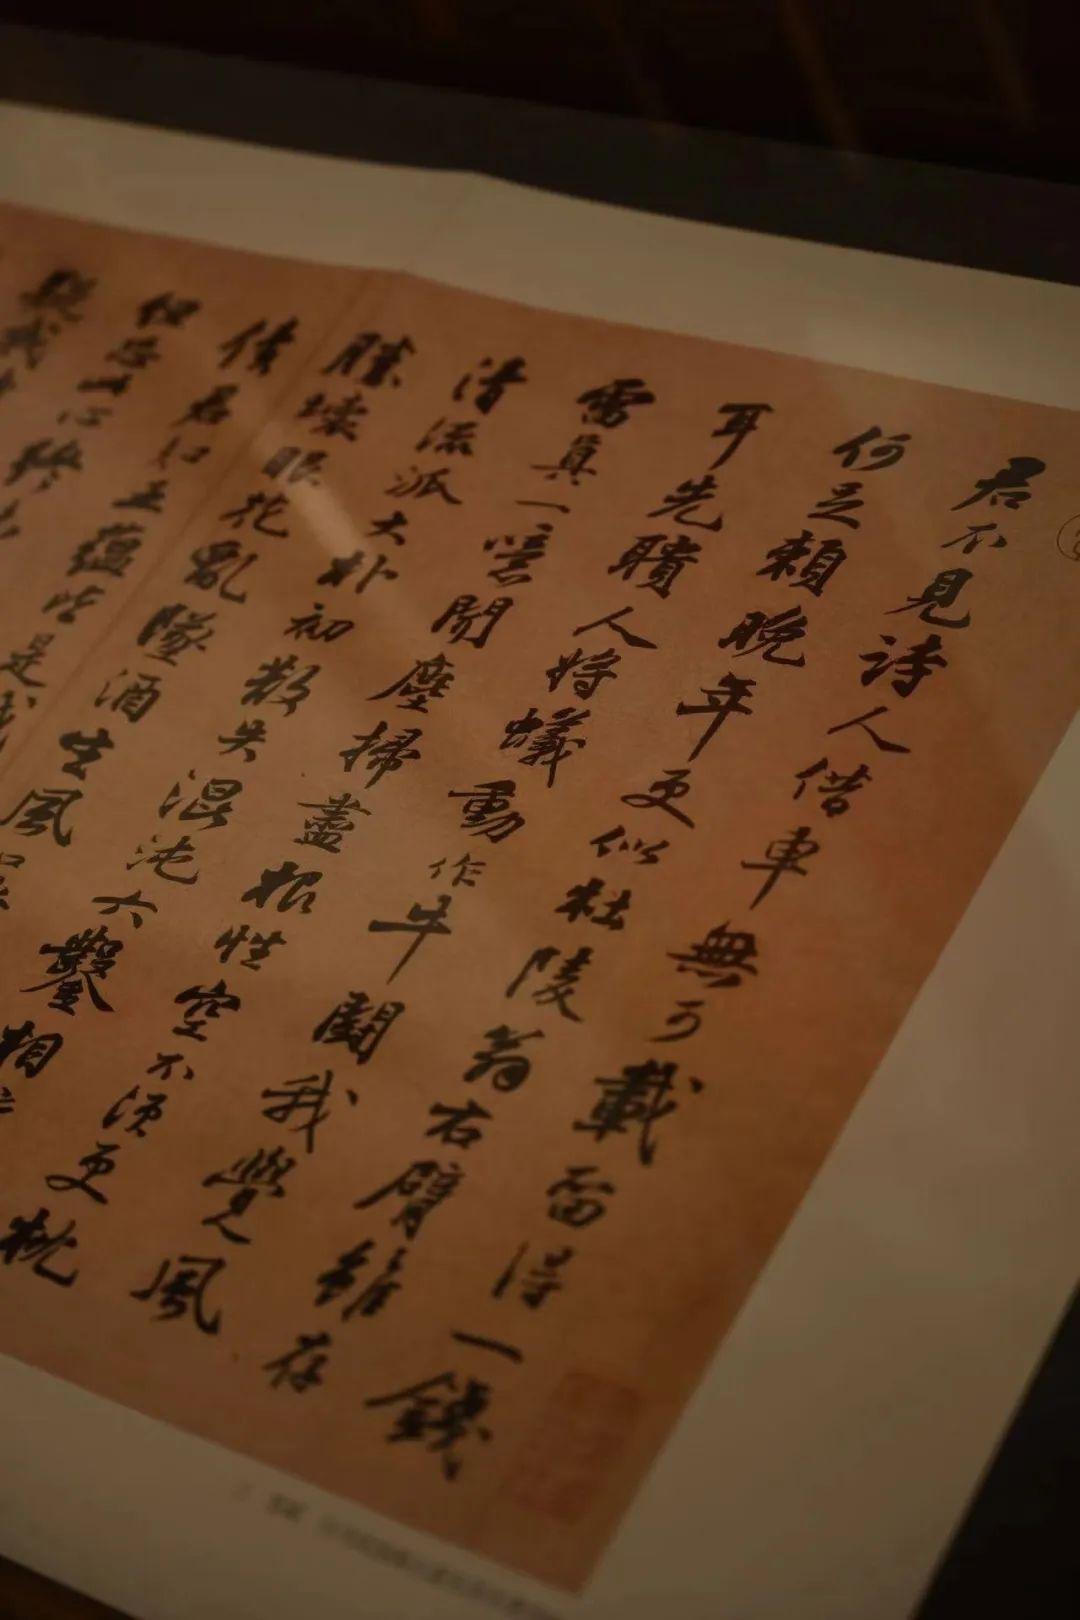 君不見詩人借車無可載留得一錢
何足賴晚年更似杜陵翁右臂雖存
耳先聵人將蟻動作牛鬭我覺風
雷真一噫聞塵掃盡根性空不須更枕
清流派大朴初散失混沌六鑿相
勝壞眼花亂墜酒生風口
債君知五蘊皆是賊
但恐此心終未
疑我